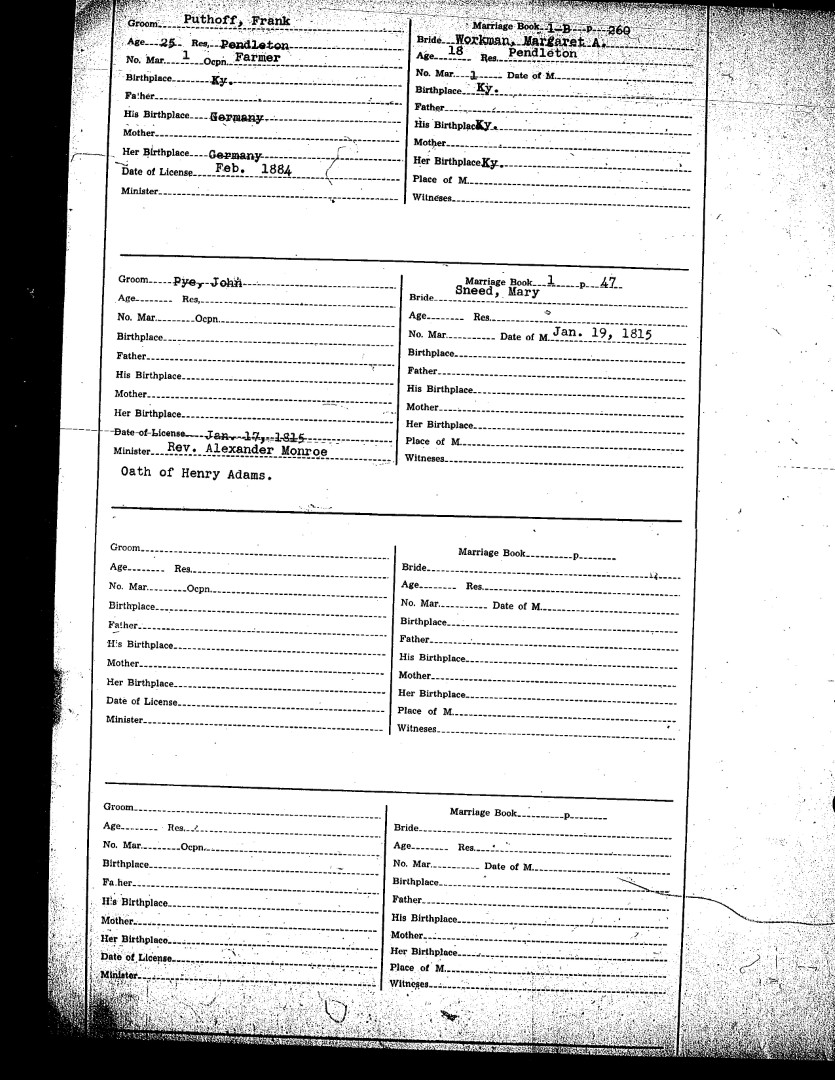 Groom Puthoff, Frank
Age 25 Res. Pendleton
No. Mar. 1 Ocpn. Farmer
Birthplace Ky.
Father
His Birthplace Germany
Mother
Her Birthplace Germany
Date of License Feb. 1884
Minister
Marriage Book 1-B p. 260
Bride Workman, Margaret A.
Age 18 Res. Pendleton
No. Mar. 1 Date of M.
Birthplace Ky.
Father
His Birthplace Ky.
Mother
Her Birthplace Ky.
Place of M.
Witneses
Groom Pye, John
Age Res.
No. Mar. Ocpn.
Birthplace
Father
His Birthplace
Mother
Her Birthplace
Date of License Jan. 17, 1815
Minister Rev. Alexander Monroe
Oath of Henry Adams.
Marriage Book 1 p. 47
Bride Sneed, Mary
Age Res.
No. Mar. Date of M. Jan. 19, 1815
Birthplace
Father
His Birthplace
Mother
Her Birthplace
Place of M.
Witneses
Groom
Age Res.
No. Mar. Ocpn.
Birthplace
Father
His Birthplace
Mother
Her Birthplace
Date of License
Minister
Marriage Book p.
Bride
Age Res.
No. Mar. Date of M.
Birthplace
Father
His Birthplace
Mother
Her Birthplace
Place of M.
Witneses
Groom
Age Res.
No. Mar. Ocpn.
Birthplace
Father
His Birthplace
Mother
Her Birthplace
Date of License
Minister
Marriage Book p.
Bride
Age Res.
No. Mar. Date of M.
Birthplace
Father
His Birthplace
Mother
Her Birthplace
Place of M.
Witneses